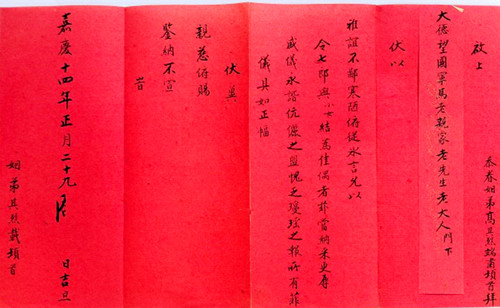 忝眷姻弟高其烈端肅頓首拜
啟上
大德望國學馬老親家老先生老大人門下
伏以
雅誼不鄙寒陋俯從冰言允以
令七郎與小女結為佳偶者菲當姻末更辱
盛儀永諧伉儷之盟愧乏瓊瑤之報所有菲
儀具如正幅
伏冀
親慈俯賜
鑒納不宣
嘉慶十四年正月二十九
日吉旦
姻弟其烈載頓首